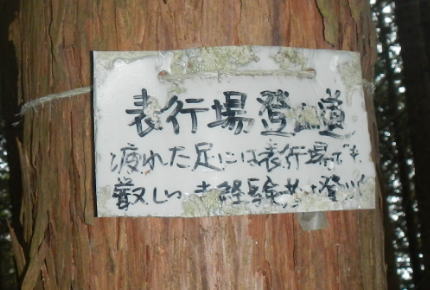 表行場登山道
疲れた足には表行場でも
厳しい未経験者は登り